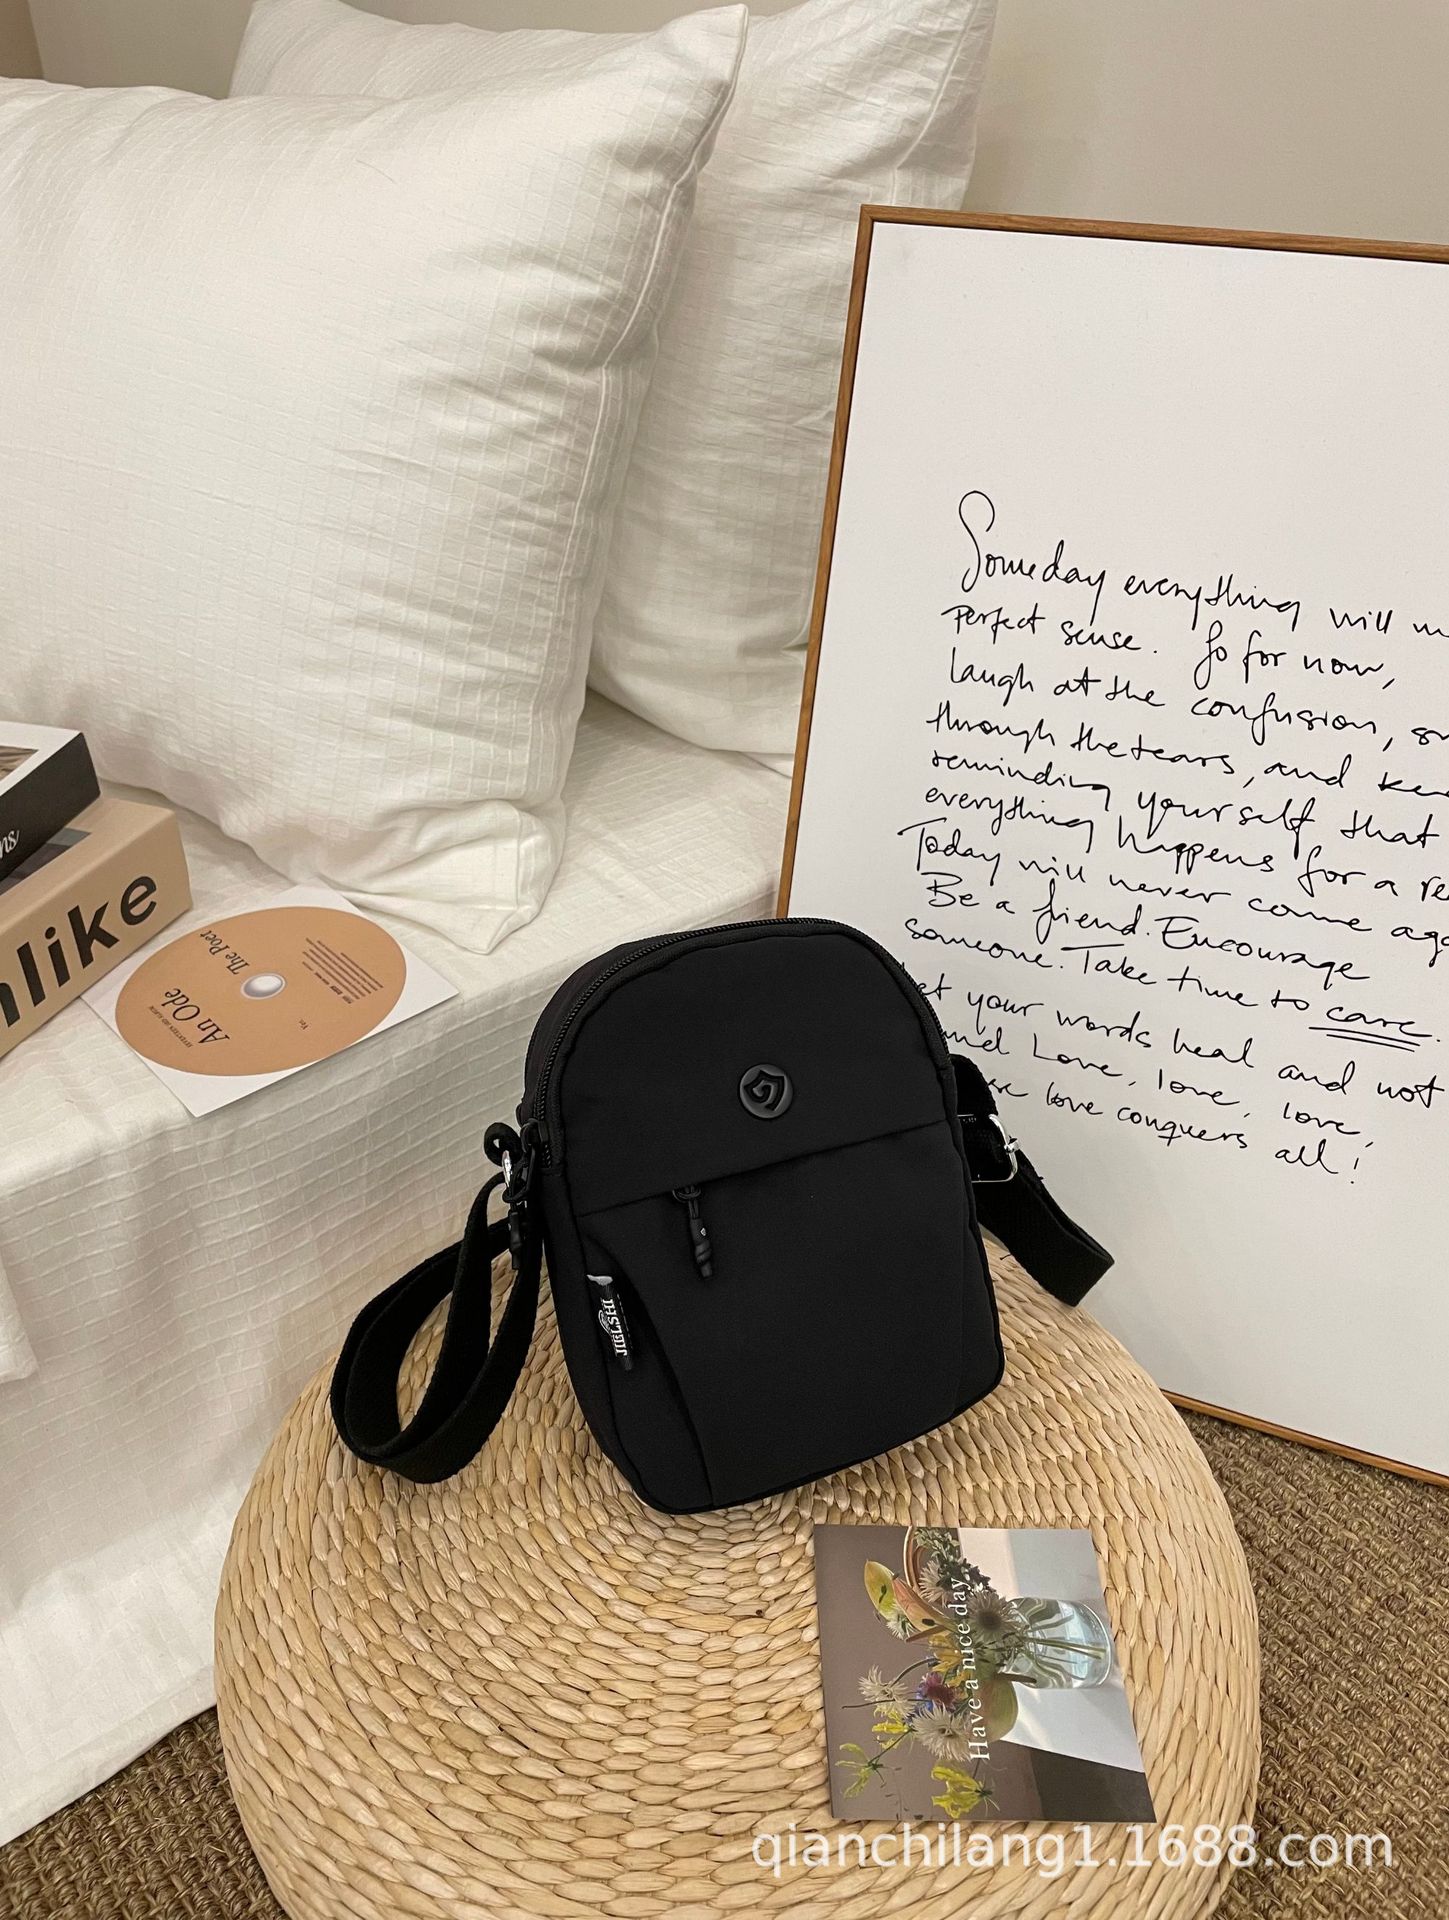 Someday everything will
Perfect sense. So for now,
laugh at the confusion,
through the tears, and
reminding yourself that
everything happens for a
Today will never come
Be a friend. Encourage
someone. Take time to care.
your words heal and not
Love, love, love,
love conquers all!
nlike
An Ode
The Poet
Ver.
JIELSHI
Have a nice day.
qianchilang1.1688.com